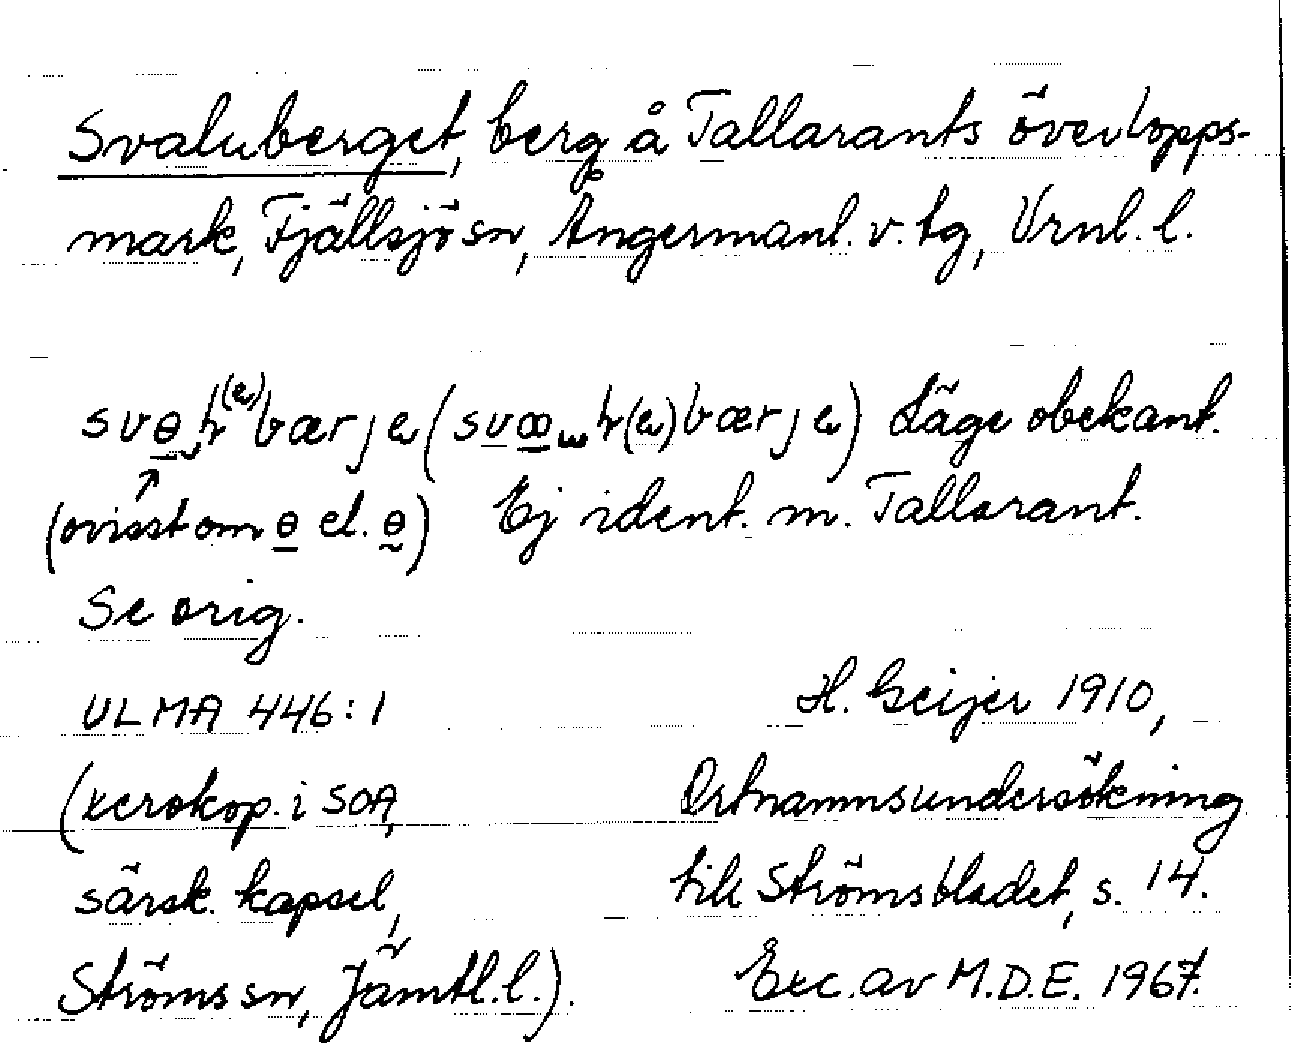 Svaluberget, berg å Tallarants överlopps-
mark, Fjällsjö sn, Ångermanl. v. tg, Vrnl. l.
Läge obekant.
(ovisst om ɵ el. ɵ) Ej ident. m. Tallarant.
Se orig.
ULMA 446:1 H. Geijer 1910,
(xerokop. i SOA, Ortnamnsundersökning
särsk. kapsel, till Strömsbladet, s. 14.
Ströms sn, Jämtl. l.). Exc. av M.D.E. 1967.